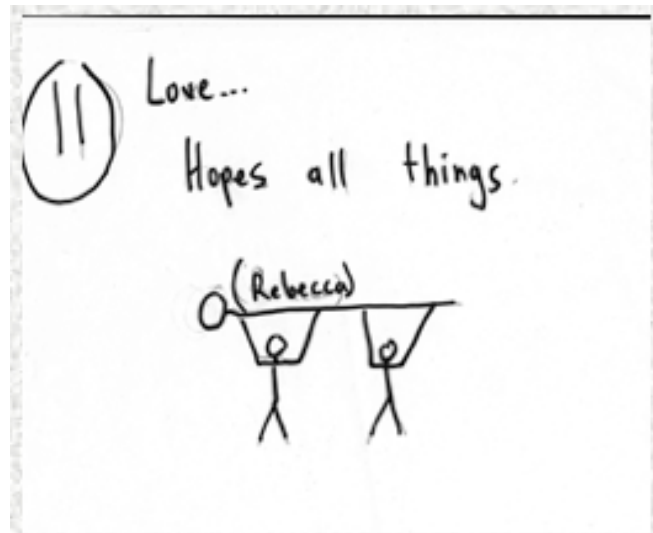 11 Love...
Hopes all things.
(Rebecca)